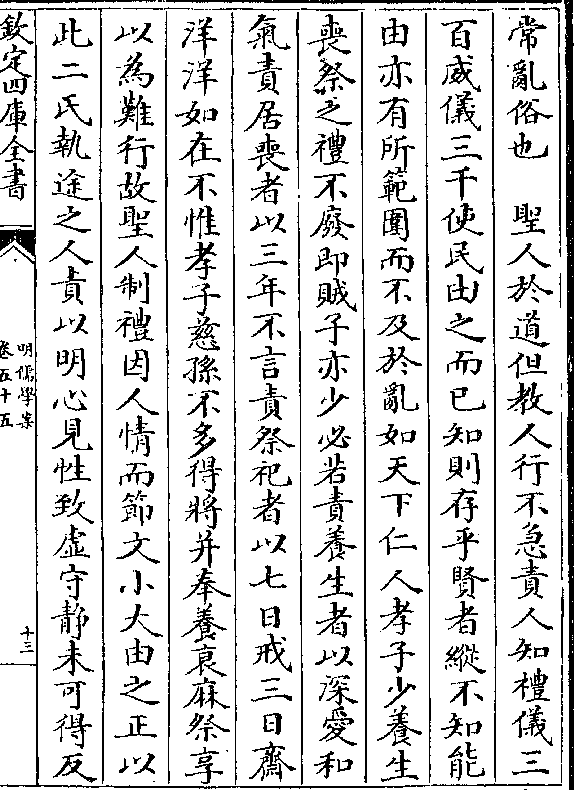 常亂俗也　聖人於道但教人行不急責人知禮儀三
百威儀三千使民由之而已知則存乎賢者縱不知能
由亦有所範圍而不及於亂如天下仁人孝子少養生
喪祭之禮不廢即賊子亦少必若責養生者以深愛和
氣責居喪者以三年不言責祭祀者以七日戒三日齋
洋洋如在不惟孝子慈孫不多得將并奉養衰麻祭享
以為難行故聖人制禮因人情而節文小大由之正以
此二氏執途之人責以明心見性致虛守靜未可得反
欽定四庫全書
明儒學案
卷五十五
十三